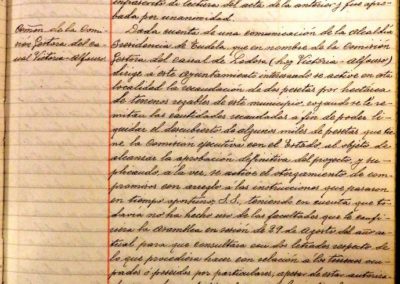 lectura del acta de la anterior y fue apro-
bada por unanimidad.
Comón. de la Comi-
sión Gestora del ca-
nal Victoria-Alfonso
Dada cuenta de una comunicación de la Alcaldía
Presidencia de Tudela, que en nombre de la Comisión
Gestora del canal de Lodosa (hoy Victoria-Alfonso)
dirige a este Ayuntamiento interesando se active en esta
localidad la recaudación de dos pesetas por hectárea
de terrenos regables de este municipio, rogando se le re-
mitan las cantidades recaudadas a fin de poder li-
quidar el descubierto de algunos miles de pesetas que tie-
ne la Comisión ejecutiva con el Estado, al objeto de
alcanzar la aprobación definitiva del proyecto, y su-
plicando a la vez, se active el otorgamiento de com-
promisos con arreglo a las instrucciones que pasaron
en tiempo oportuno S.S. teniendo en cuenta que to-
davía no ha hecho uso de las facultades que le confi-
riera la Asamblea en sesión de 29 de Agosto del año ac-
tual para que consultara con dos letrados respecto de
lo que procediera hacer con relación a los terrenos ocu-
pados ó poseidos por particulares, apesar de esta autoriza-